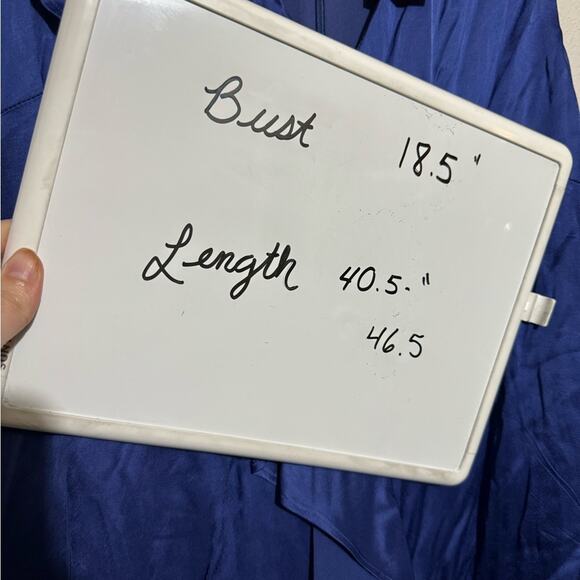 Bust 18.5"
Length 40.5-"
46.5